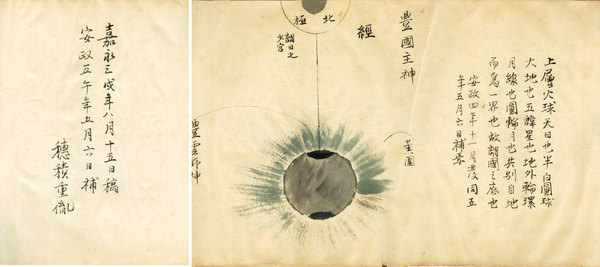 上層火球天日也半白圓球
大地也五緯星也地外輪環
月線也圓輪月也共別自地
而爲一界也故謂國之底也
安政四年十一月同五
年五月六日補
豐國主神
經
北極
謂日之
豊雲野神
嘉永三戌年八月十五日稿
安政五午年五月六日補
穗積重胤